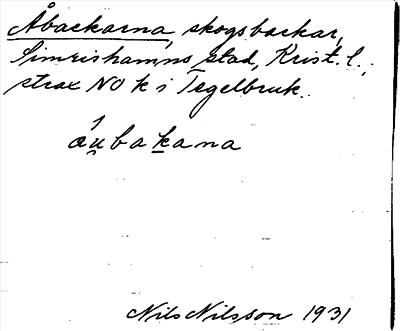 Åbackarna, skogsbackar,
Simrishamns stad, Krist. l.,
strax NO k i Tegelbruk.
áu̯bak̲ana
Nils Nilsson 1931